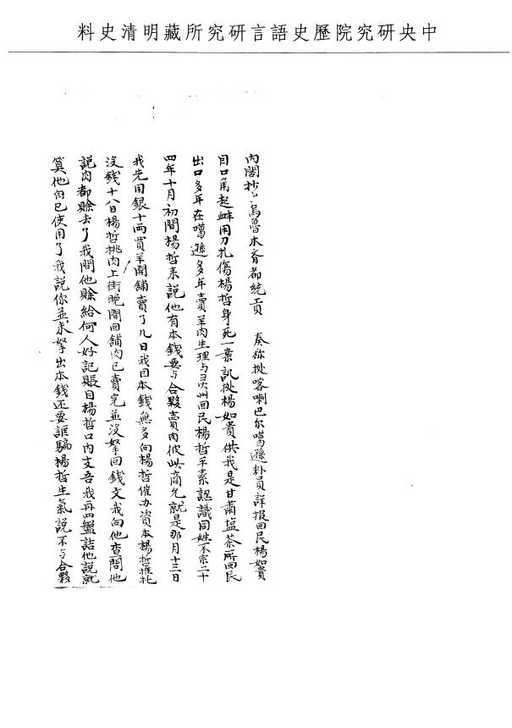 中央研究院歷史語言研究所藏明清史料
內閣抄出烏魯木齊都統貢 奏称拠喀喇巴尔噶遜粮員詳报回民楊如貴
因口角起衅用刀扎傷楊哲身死一案訊拠楊如貴供我是甘肅塩茶所回民
出口多年在噶遜多年賣羊肉生理与㳄州回民楊哲平素認識同姓不宗二十
四年十月初間楊哲来說他有本錢要与合夥賣肉彼此商允就是那月十三日
我先用銀十兩買羊開舖賣了几日我因本錢無多向楊哲催办資本楊哲推托
沒錢十八日楊哲挑肉上街晚間回舖肉已賣完並沒拏回錢文我向他查問他
說肉都賒去了我問他賒給何人好記賬目楊哲口內支吾我再四盤詰他說就
算他自己使用了我說你並未拏出本錢还要誆騙楊哲生氣說不与合夥